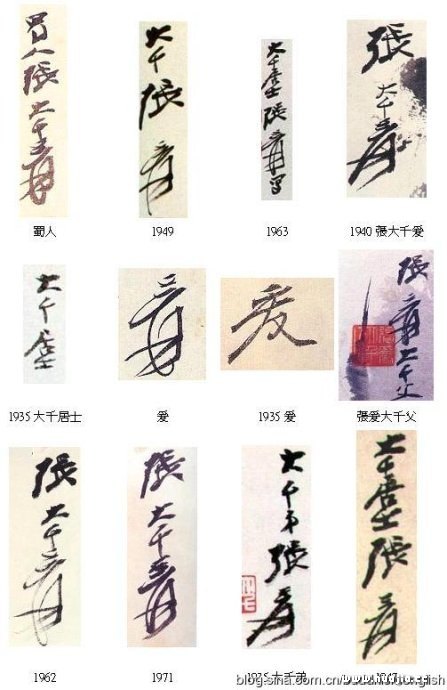 蜀人張大千爰
大千張爰
大千居士張爰寫
張大千爰
蜀人
1949
1963
1940 張大千爱
大千居士
爰
爰
張爰大千父
1935 大千居士
爱
1935 爱
張爱大千父
張大千爰
張大千爰
大千弟張爰
大千居士張爰
1962
1971
大千弟